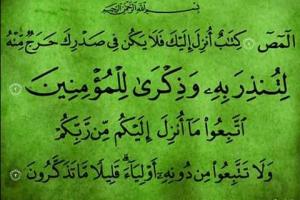 بِسْمِ اللَّهِ الرَّحْمَٰنِ الرَّحِيمِ
الٓمٓصٓ ١ كِتَٰبٌ أُنزِلَ إِلَيْكَ فَلَا يَكُن فِى صَدْرِكَ حَرَجٌ مِّنْهُ
لِتُنذِرَ بِهِۦ وَذِكْرَىٰ لِلْمُؤْمِنِينَ ٢
ٱتَّبِعُوا۟ مَآ أُنزِلَ إِلَيْكُم مِّن رَّبِّكُمْ
وَلَا تَتَّبِعُوا۟ مِن دُونِهِۦٓ أَوْلِيَآءَ ۗ قَلِيلًا مَّا تَذَكَّرُونَ ٣